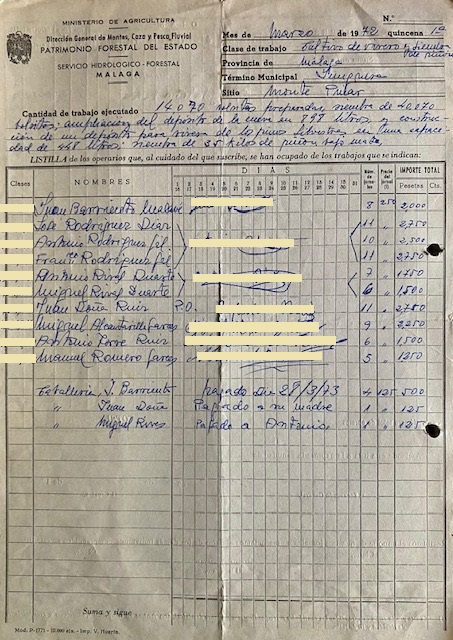 N.º
MINISTERIO DE AGRICULTURA
Dirección General de Montes, Caza y Pesca Fluvial
PATRIMONIO FORESTAL DEL ESTADO
SERVICIO HIDROLOGICO-FORESTAL
MALAGA
Mes de Marzo de 1972 quincena 1ª
Clase de trabajo Cultivo de vivero y siembra de piñón
Provincia de Málaga
Término Municipal
Sitio Monte Pinar
Cantidad de trabajo ejecutado 14.070 bolsitas preparadas, siembra de 40.070
bolsitos; ampliación del depósito de la cueva en 897 litros y construc-
ción de un depósito para vivero de los pinus silvestris en una capaci-
dad de 448 litros; siembra de 35 kilos de piñón bajo
LISTILLA de los operarios que, al cuidado del que suscribe, se han ocupado de los trabajos que se indican:
Clases NOMBRES DIAS Núm. de jornales Precio del jornal (1) IMPORTE TOTAL
Pesetas Cts.
1 2 3 4 5 6 7 8 9 10 11 12 13 14 15 31
16 17 18 19 20 21 22 23 24 25 26 27 28 29 30
Juan Barmiento 8 250 2,000
José Rodríguez Díaz 11 " 2,750
Antonio Rodríguez Gil 10 " 2,500
Franco Rodríguez Gil 11 " 2750
Antonio Rivel Duarte 7 " 1750
Miguel Rivel Duarte 6 " 1,500
Juan Doña Ruiz P.O. 11 " 2,750
Miguel 9 " 2,250
Antonio Torre Ruiz 6 " 1,500
Manuel Romero 5 " 1250
Caballería J. Barmiento pagado Día 28/3/73 4 125 500
" Juan Doña Pagado a su madre 1 " 125
" Miguel Rives Pagado a Antonio 1 " 125
Suma y sigue
Mod. P-(17) - 10.000 ejs. - Imp. V. Huerta.